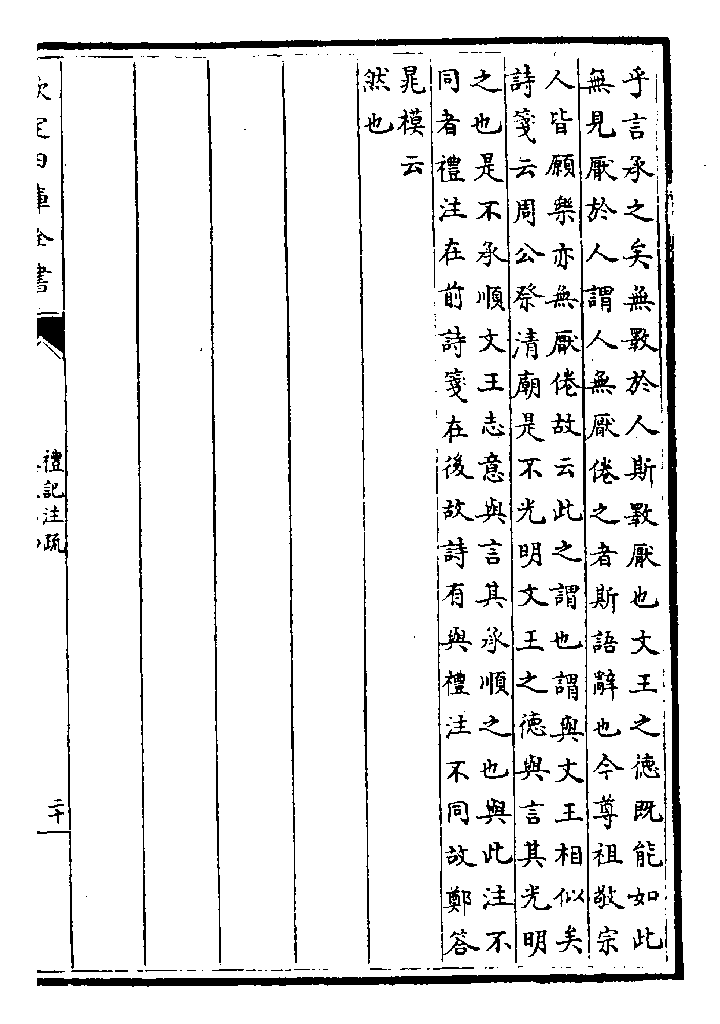 乎言承之矣無斁於人斯斁厭也文王之德既能如此
無見厭於人謂人無厭倦之者斯語辭也今尊祖敬宗
人皆願樂亦無厭倦故云此之謂也謂與文王相似矣
詩箋云周公祭清廟是不光明文王之德與言其光明
之也是不承順文王志意與言其承順之也與此注不
同者禮注在前詩箋在後故詩有與禮注不同故鄭答
炅模云
然也
欽定四庫全書
禮記注疏
二十